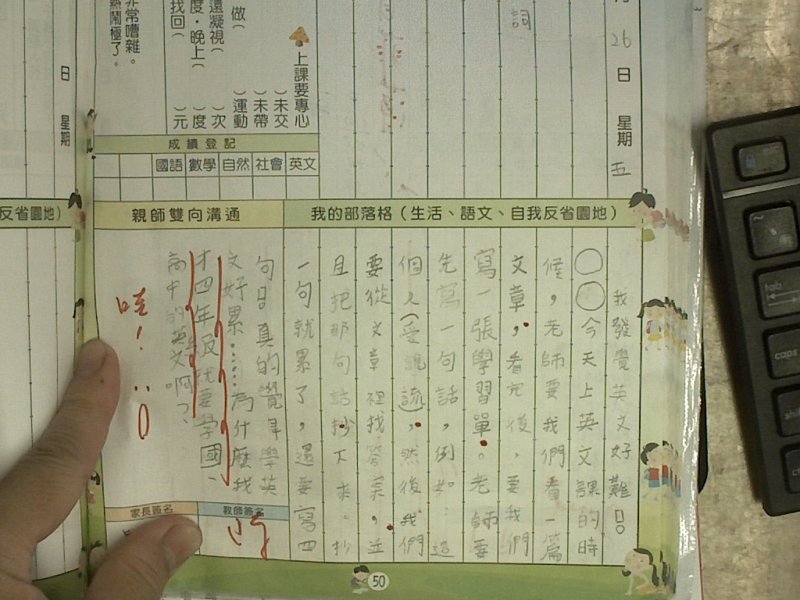 月26日 星期五
詞
上課要專心
( )未交
( )未帶
( )運動
做(
遠凝視( )次
度，晚上( )度
找回( )元
非常嘈雜。
熱鬧極了。
成績登記
國語 數學 自然 社會 英文
日 星期
反省園地)
親師雙向溝通
我的部落格(生活、語文、自我反省園地)
我發覺英文好難!!。
○○今天上英文課的時
候，老師要我們看一篇
文章，看完後，要我們
寫一張學習單。老師要
先寫一句話，例如：這
個人(愛說謊)，然後我們
要從文章裡找答案，並
且把那句話抄下來。抄
一句就累了，還要寫四
句!!真的覺得學英
文好累……為什麼我
才四年級就要學國、
高中的英文啊?
哇!
家長簽名
教師簽名
50
~
tab
caps
shi